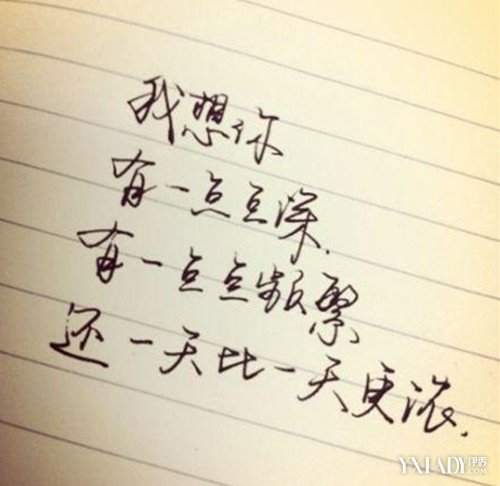 我想你
有一点点深.
有一点点频繁
还一天比一天更浓.
YXLADY.COM伊秀